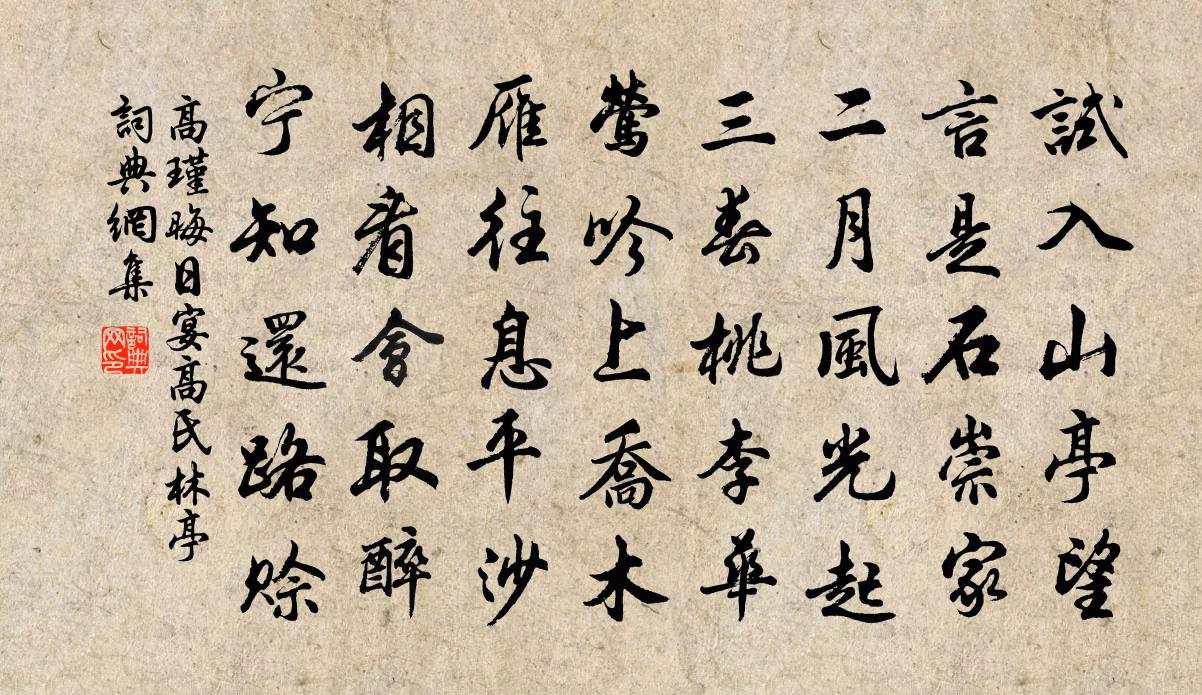 試入山亭望
言是石崇家
二月風光起
三春桃李華
鶯吟上喬木
雁往息平沙
相看會取醉
宁知還路賒
高瑾晦日宴高氏林亭
詞典網集
詞典
网印